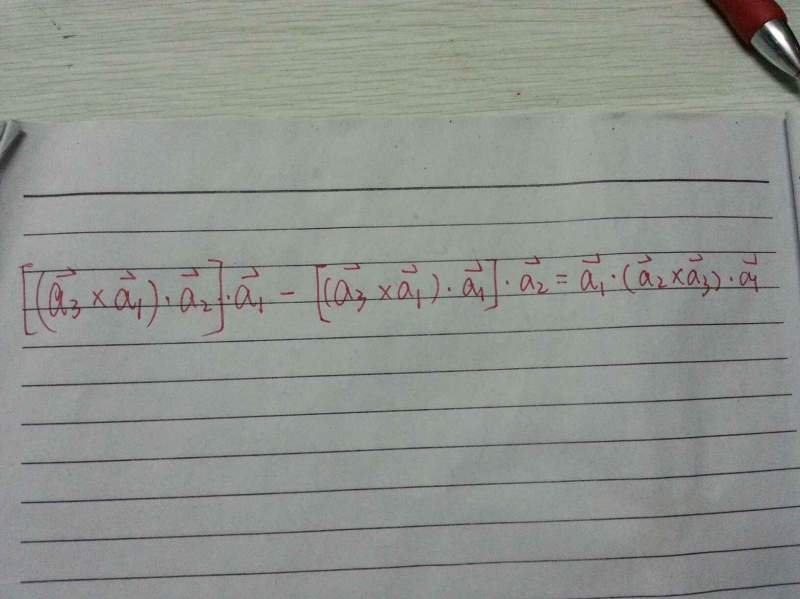 [(a⃗₃ × a⃗₁) · a⃗₂] · a⃗₁ − [(a⃗₃ × a⃗₁) · a⃗₁] · a⃗₂ = a⃗₁ · (a⃗₂ × a⃗₃) · a⃗₁